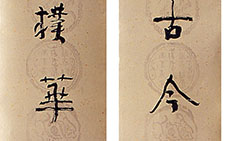 古今
樸華